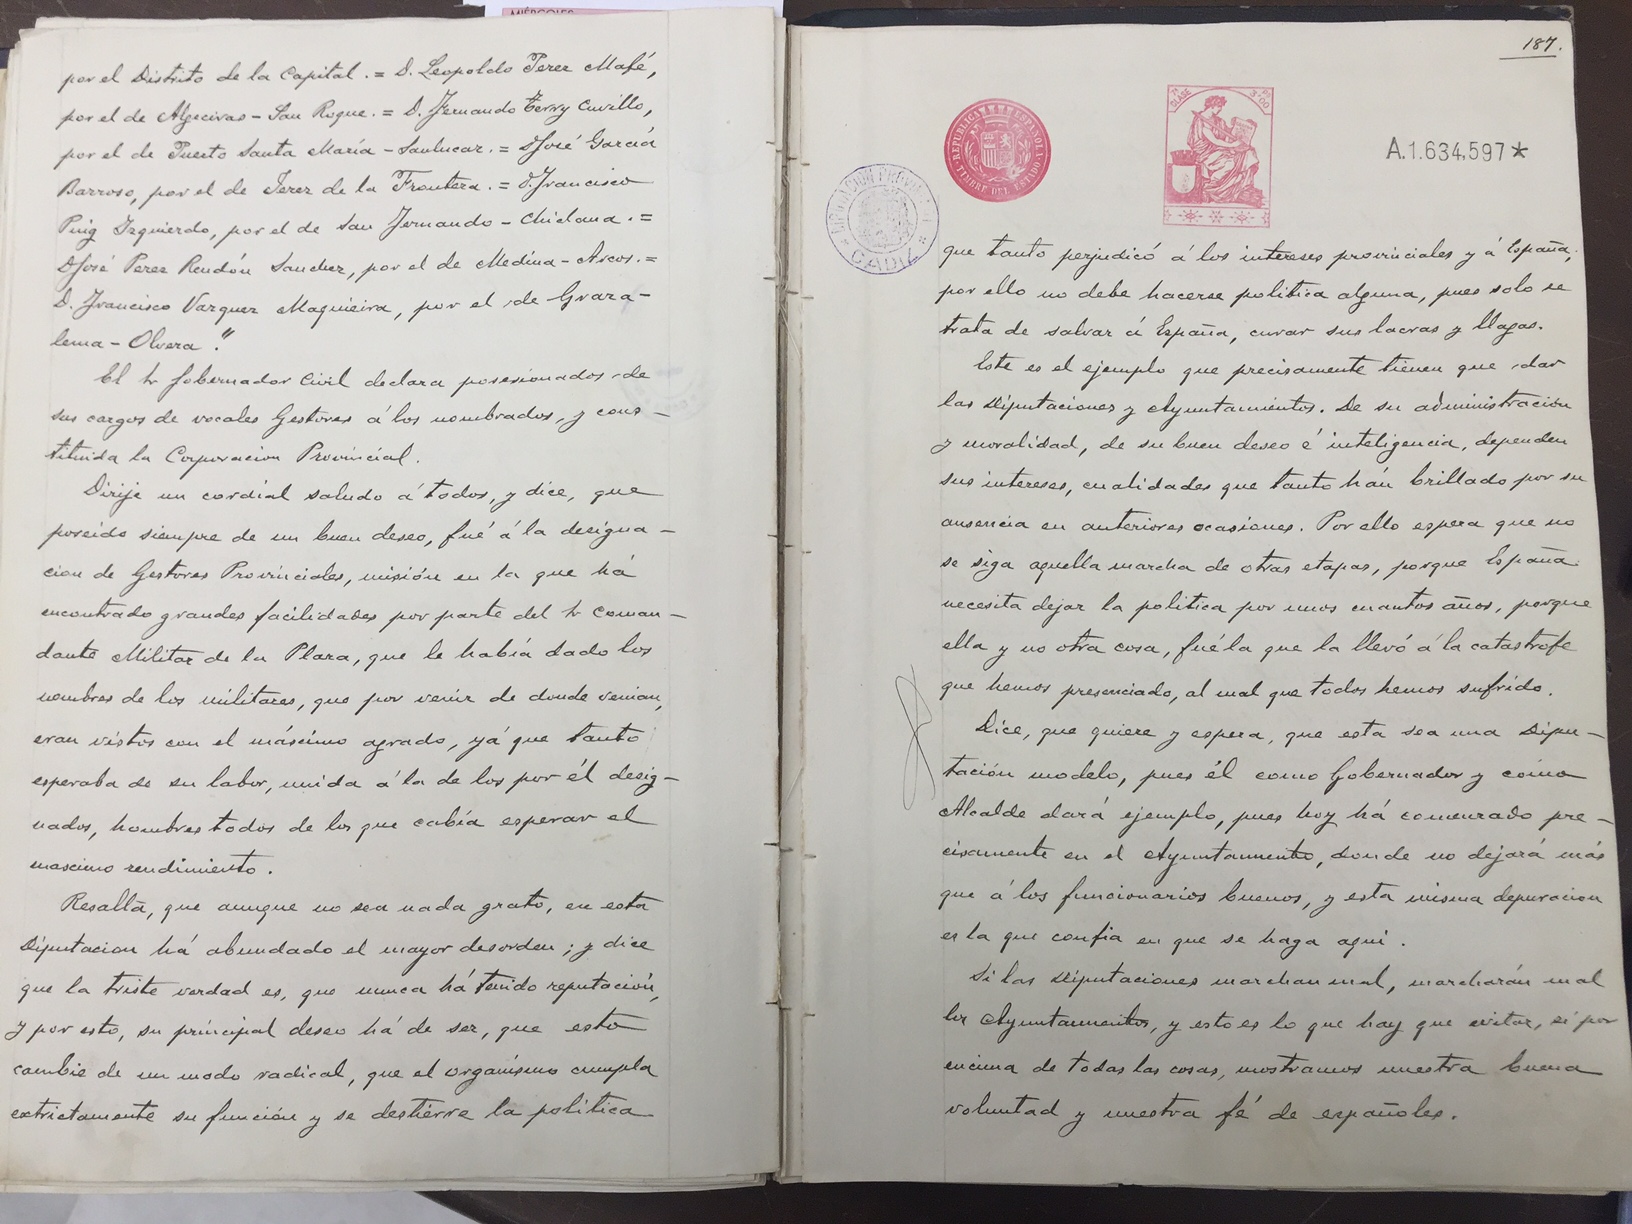 MIÉRCOLES
por el Distrito de la Capital. = D. Leopoldo Perez Mafé,
por el de Algeciras - San Roque. = D. Fernando Terry Cuvillo,
por el de Puerto Santa María - Sanlucar. = D José García
Barroso, por el de Jerez de la Frontera. = D. Francisco
Puig Izquierdo, por el de San Fernando - Chiclana. =
D José Perez Rendón Sanchez, por el de Medina - Arcos. =
D. Francisco Vazquez Maquieira, por el de Graza-
lema - Olvera."
El Sr Gobernador Civil declara posesionados de
sus cargos de vocales Gestores á los nombrados, y cons-
tituida la Corporacion Provincial.
Dirije un cordial saludo á todos, y dice, que
poseido siempre de un buen deseo, fué á la designa-
cion de Gestores Provinciales, misión en la que há
encontrado grandes facilidades por parte del Sr Coman-
dante Militar de la Plaza, que le había dado los
nombres de los militares, que por venir de donde venian,
eran vistos con el máscimo agrado, yá que tanto
esperaba de su labor, unida á la de los por él desig-
nados, hombres todos de los que cabía esperar el
mascimo rendimiento.
Resalta, que aunque no sea nada grato, en esta
Diputacion há abundado el mayor desorden; y dice
que la triste verdad es, que nunca há tenido reputación,
y por esto, su principal deseo há de ser, que esto
cambie de un modo radical, que el organismo cumpla
extrictamente su función y se destierre la politica
187.
REPUBLICA ESPAÑOLA
TIMBRE DEL ESTADO
7ª CLASE 3'00 Ps
A.1.634.597*
DIPUTACION PROVINCIAL
* CADIZ *
que tanto perjudicó á los intereses provinciales y á España;
por ello no debe hacerse politica alguna, pues solo se
trata de salvar á España, curar sus lacras y llagas.
Este es el ejemplo que precisamente tienen que dar
las Diputaciones y Ayuntamientos. De su administración
y moralidad, de su buen deseo é inteligencia, dependen
sus intereses, cualidades que tanto hán brillado por su
ausencia en anteriores ocasiones. Por ello espera que no
se siga aquella marcha de otras etapas, porque España
necesita dejar la politica por unos cuantos años, porque
ella y no otra cosa, fué la que la llevó á la catastrofe
que hemos presenciado, al mal que todos hemos sufrido.
Dice, que quiere y espera, que esta sea una Dipu-
tación modelo, pues él como Gobernador y como
Alcalde dará ejemplo, pues hoy há comenzado pre-
cisamente en el Ayuntamiento, donde no dejará más
que á los funcionarios buenos, y esta misma depuracion
es la que confia en que se haga aqui.
Si las Diputaciones marchan mal, marcharán mal
los Ayuntamientos, y esto es lo que hay que evitar, si por
encima de todas las cosas, mostramos nuestra buena
voluntad y nuestra fé de españoles.